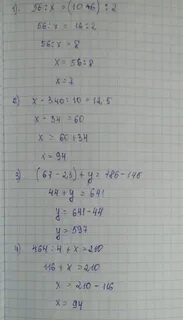 1). 56 : x = (10+6) : 2
56 : x = 16 : 2
56 : x = 8
x = 56 : 8
x = 7
2) x - 340 : 10 = 12 . 5
x - 34 = 60
x = 60 + 34
x = 94
3) (67 - 23) + y = 786 - 145
44 + y = 641
y = 641 - 44
y = 597
4) 464 : 4 + x = 210
116 + x = 210
x = 210 - 116
x = 94